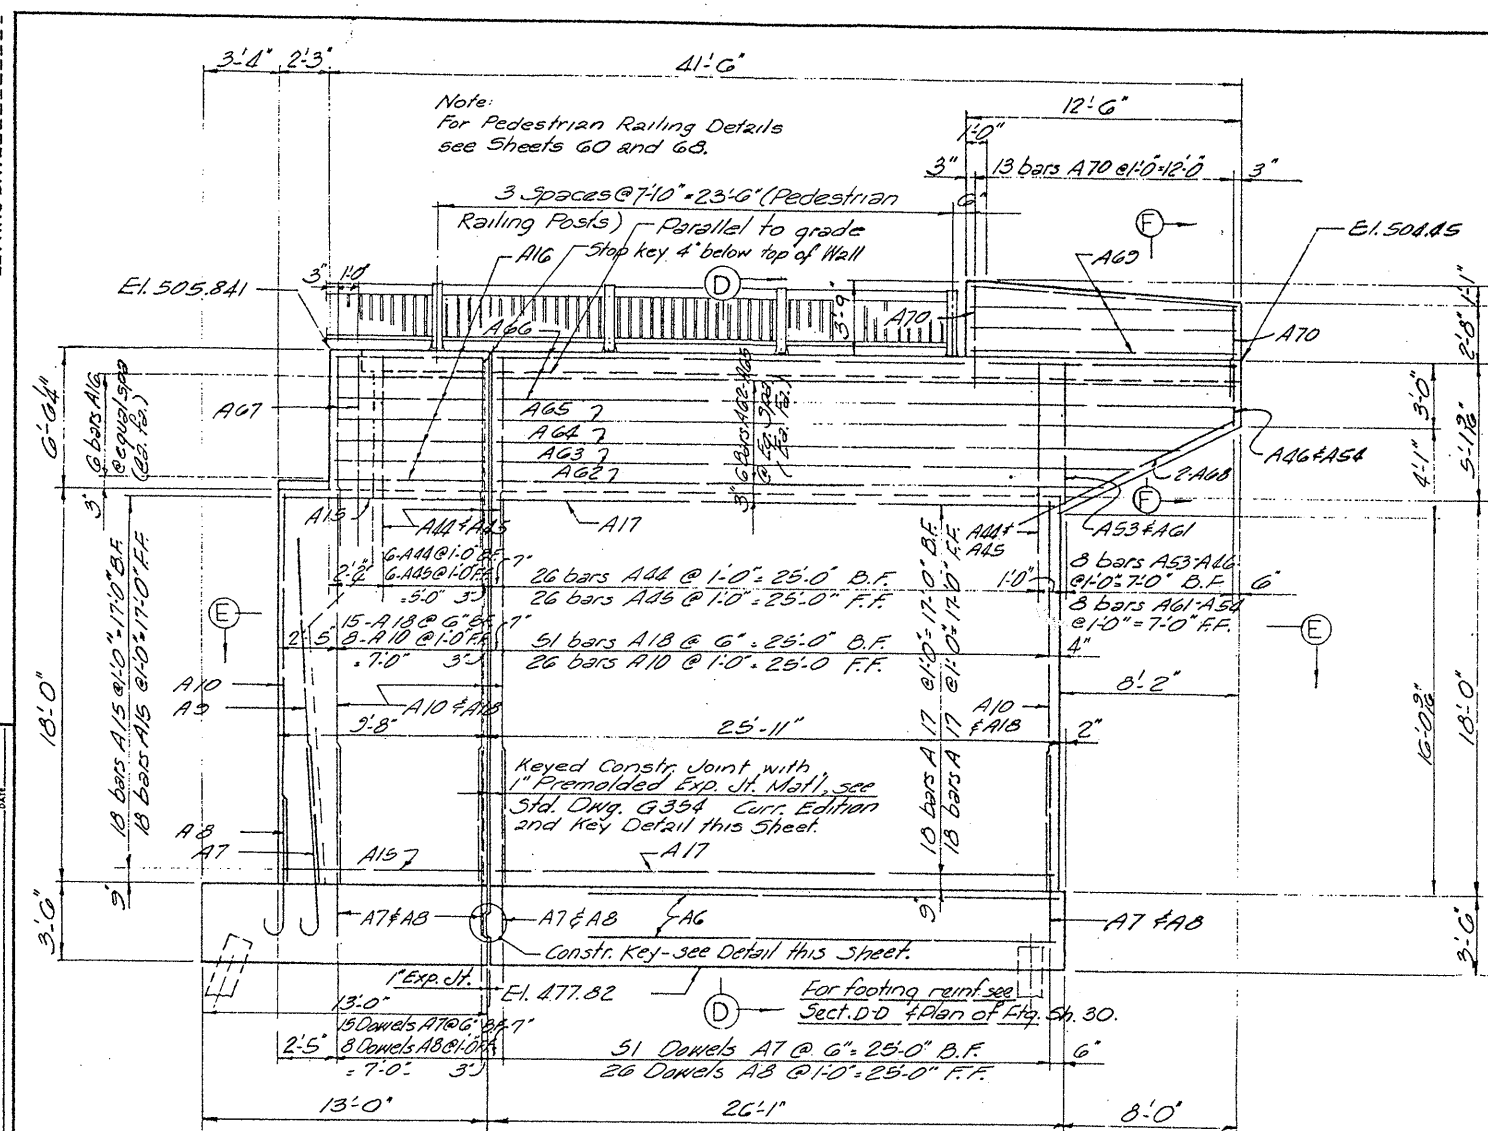 3'-4" 2'-3"
41'-6"
12'-6"
1'-0"
Note:
For Pedestrian Railing Details
see Sheets 60 and 68.
3" 13 bars A70 @1'-0"=12'-0" 3"
3 Spaces @ 7'-10" = 23'-6" (Pedestrian
Railing Posts)
6"
Parallel to grade
Stop key 4" below top of Wall
A16
F
El. 504.45
A69
D
El. 505.841
3" 1'-0"
3'-9"
A70
A70
1'-1"
2'-8"
A66
A67
6 bars A16
@ equal spa
(ea. fa.)
3"
A65
A64
A63
A62
3" 6 Bars A62-A65
@ Eq. Spa.
(Ea. Fa.)
3'-0"
4'-1"
A46 & A54
2-A68
F
A15
A44 & A45
A17
A44 &
A45
A53 & A61
6-A44 @ 1'-0" B.F.
6-A45 @ 1'-0" F.F.
=5'-0" 3"
7"
26 bars A44 @ 1'-0" = 25'-0" B.F.
26 bars A45 @ 1'-0" = 25'-0" F.F.
1'-0"
8 bars A53-A46
@1'-0"=7'-0" B.F.
8 bars A61-A54
@1'-0"=7'-0" F.F.
6"
E
E
2'-5"
15-A18 @ 6" B.F.
8-A10 @ 1'-0" F.F.
=7'-0" 3"
7"
51 bars A18 @ 6" = 25'-0" B.F.
26 bars A10 @ 1'-0" = 25'-0 F.F.
4"
8'-2"
18 bars A15 @1'-0"=17'-0" B.F.
18 bars A15 @1'-0"=17'-0" F.F.
18'-0"
A10
A9
A10 & A18
9'-8"
25'-11"
18 bars A17 @1'-0"=17'-0" B.F.
18 bars A17 @1'-0"=17'-0" F.F.
A10
& A18
2"
18'-0"
Keyed Constr. Joint with
1" Premolded Exp. Jt. Mat'l, see
Std. Dwg. G354 Curr. Edition
and Key Detail this Sheet.
A8
A7
A15
A17
9"
9"
3'-6"
A7 & A8
A7 & A8
A6
A7 & A8
3'-6"
Constr. Key-see Detail this Sheet.
1" Exp. Jt.
El. 477.82
D
For footing reinf. see
Sect. D-D & Plan of Ftg. Sh. 30.
13'-0"
15 Dowels A7 @ 6" B.F.
8 Dowels A8 @1'-0" F.F.
=7'-0" 3"
7"
2'-5"
51 Dowels A7 @ 6" = 25'-0" B.F.
26 Dowels A8 @ 1'-0" = 25'-0" F.F.
6"
13'-0"
26'-1"
8'-0"